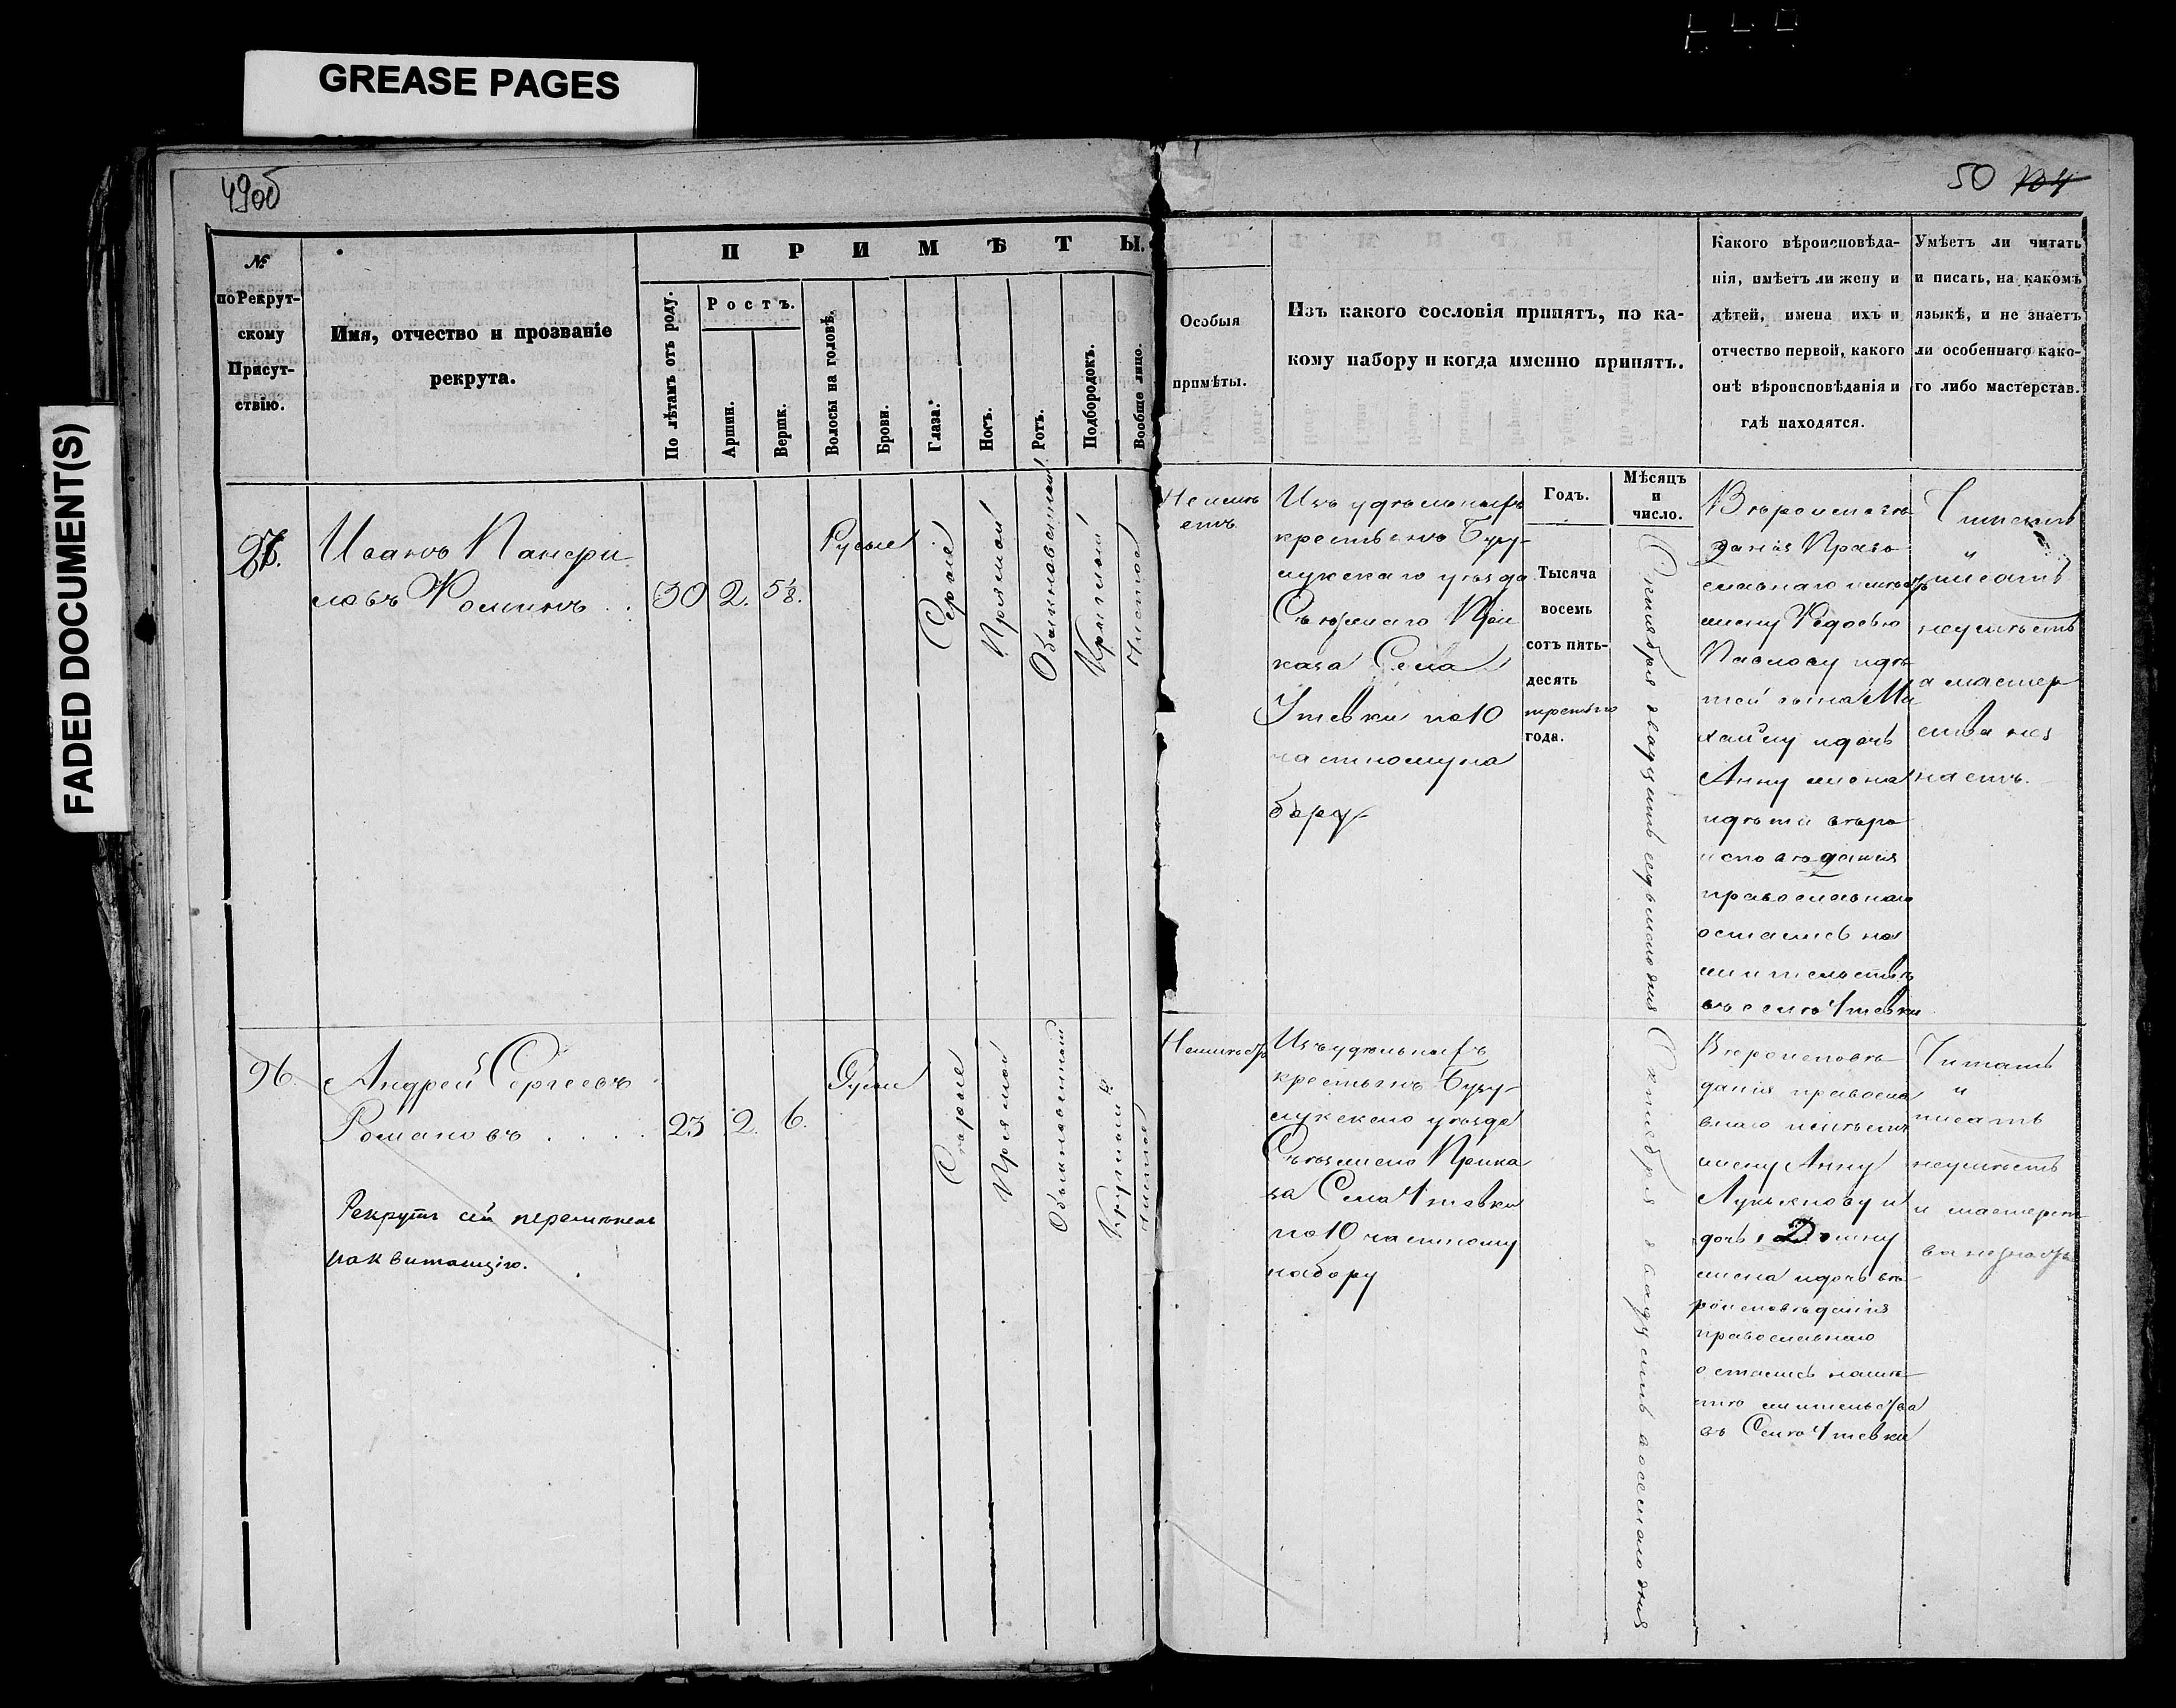 GREASE PAGES
FADED DOCUMENT(S)
49об
50 104
№
по Рекрут-
скому
Присут-
ствію.
Имя, отчество и прозваніе
рекрута.
ПРИМѢТЫ.
По лѣтамъ отъ роду.
Ростъ.
Аршин.
Вершк.
Волосы на головѣ.
Брови.
Глаза.
Носъ.
Ротъ.
Подбородокъ.
Вообще лицо.
Особыя
примѣты.
Изъ какого сословія принятъ, по ка-
кому набору и когда именно принятъ.
Какого вѣроисповѣда-
нія, имѣетъ ли жену и
дѣтей, имена ихъ и
отчество первой, какого
онѣ вѣроисповѣданія и
гдѣ находятся.
Умѣетъ ли читать
и писать, на какомъ
языкѣ, и не знаетъ
ли особеннаго како-
го либо мастерстав.
Годъ.
Мѣсяцъ
и
число.
Иванъ Панфи
ловъ Фоминъ
30 2. 5 1/8.
Русые
Сѣрые
Прямой
Обыкновенный
Круглый
Чистое
Неимѣ
етъ
Изъ удѣльныхъ
крестьянъ Бугу-
лукскаго уѣзда
Съѣзжаго При
каза Села
Утевки по 10
частному на
бору
Тысяча
восемь
сотъ пять-
десять
третьяго
года.
Октября двадцать седьмаго дня
Вѣроисповѣ
данія Право
славнаго имѣетъ
жену Федосью
Павлову и дѣ
тей сына Ми
хайлу и дочь
Анну жена
и дѣти вѣро
исповѣданія
православнаго
остались на
жительствѣ
въ селѣ Утевки
Читать
и
писать
неумѣетъ
а мастер
ства нез
наетъ.
96.
Андрей Сергеевъ
Романовъ
23 2. 6.
Русые
Сѣрые
Прямой
Обыкновенный
Круглый
Чистое
Рекрутъ сей перемѣненъ
на квитанцію.
Неимѣетъ
Изъ удѣльныхъ
крестьянъ Бугу-
лукскаго уѣзда
Съѣзжаго Прика
за Села Утевки
по 10 частному
набору
Октября двадцать восьмаго дня
Вѣроисповѣ
данія правосла
внаго имѣетъ
жену Анну
Лукьянову и
дочь Домну
жена и дочь вѣ-
роисповѣданія
православнаго
остались намѣ-
стѣ жительства
въ Селѣ Утевки
Читать
и
писать
неумѣетъ
и мастерст
ва незнаетъ